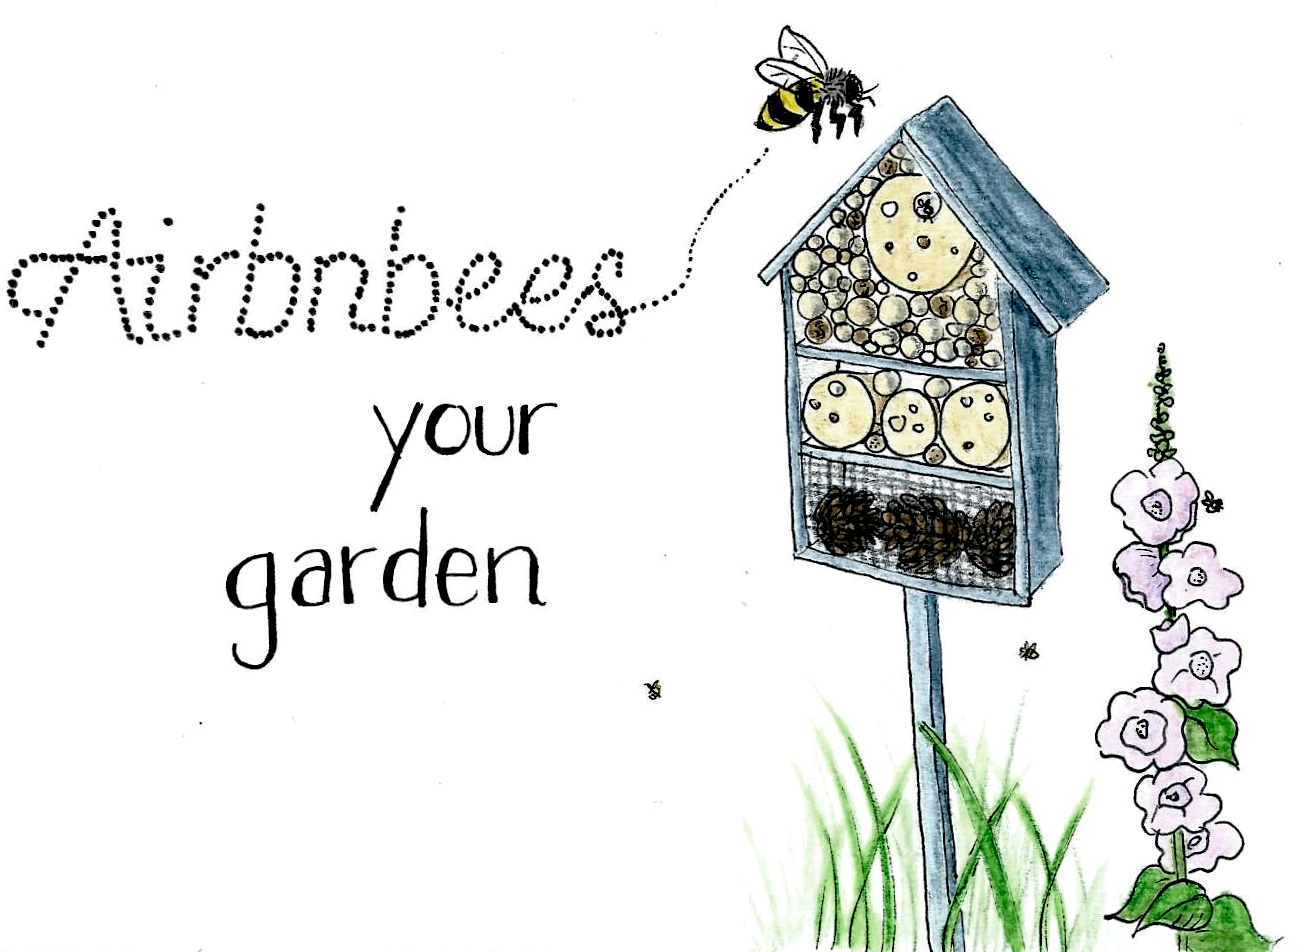 Airbnbees
your
garden